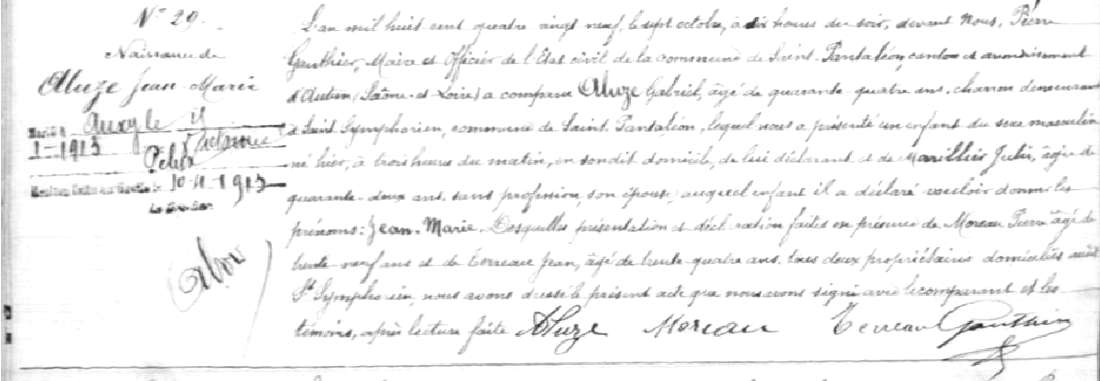 N° 29.
Naissance de
Aluze Jean Marie
Marié à Auxy le 4
1-1913
10-11-1913
L'an mil huit cent quatre vingt neuf, le sept octobre, à dix heures du soir, devant nous, Pierre
Gauthier, Maire et Officier de l'Etat civil de la commune de Saint-Pantaléon, canton et arrondissement
d'Autun (Saône-et-Loire) a comparu Aluze Gabriel, âgé de quarante quatre ans, charron demeurant
à Saint Symphorien, commune de Saint-Pantaléon, lequel nous a présenté un enfant du sexe masculin
né hier, à trois heures du matin, en son dit domicile, de lui déclarant et de Marillier Julie, âgée de
quarante-deux ans, sans profession, son épouse, auquel enfant il a déclaré vouloir donner les
prénoms: Jean-Marie. Desquelles présentation et déclaration faites en présence de Moreau Pierre âgé de
trente neuf ans et de Terreau Jean, âgé de trente quatre ans, tous deux propriétaires domiciliés audit
St Symphorien, nous avons dressé le présent acte que nous avons signé avec le comparant et les
témoins, après lecture faite Aluze Moreau Terreau Gauthier